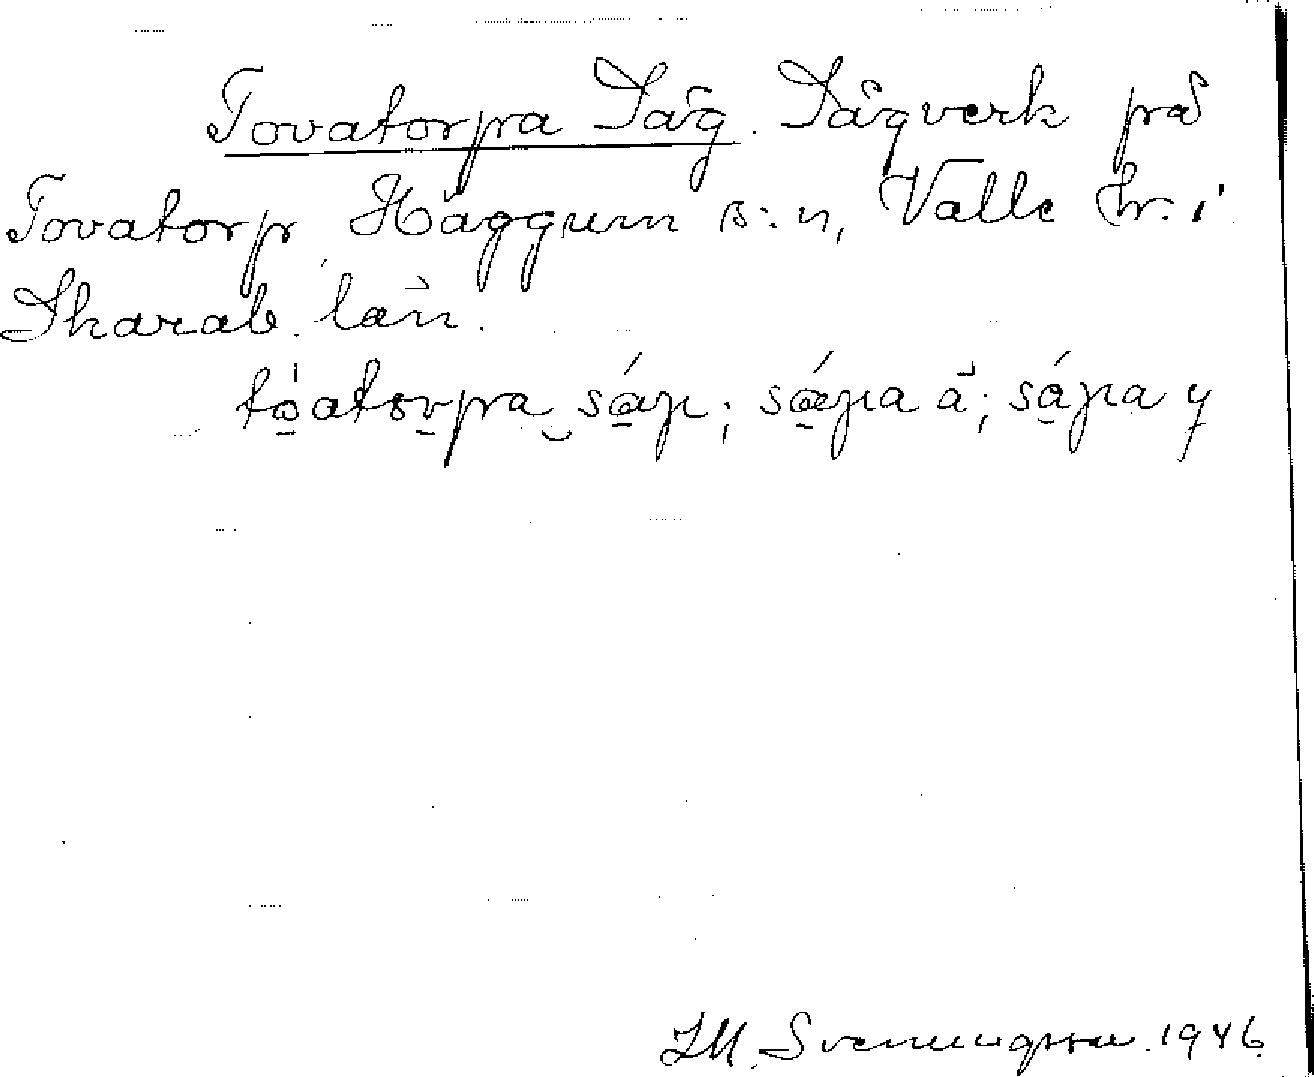 Tovatorpa Såg. Sågverk på
Tovatorp, Häggum s:n, Valle hr. i
Skarab. län.
tòatorpa såg; såga å; såga y
J.M. Svenningsson. 1946.